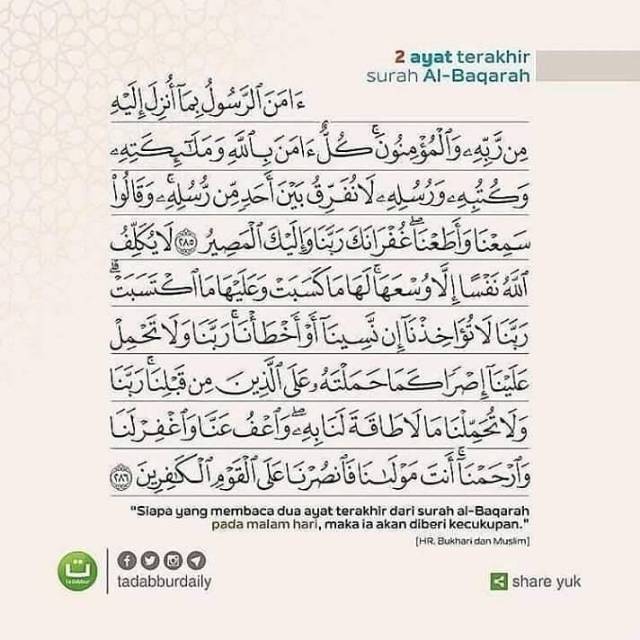 2 ayat terakhir
surah Al-Baqarah
ءَامَنَ ٱلرَّسُولُ بِمَآ أُنزِلَ إِلَيْهِ
مِن رَّبِّهِۦ وَٱلْمُؤْمِنُونَۚ كُلٌّ ءَامَنَ بِٱللَّهِ وَمَلَـٰٓئِكَتِهِۦ
وَكُتُبِهِۦ وَرُسُلِهِۦ لَا نُفَرِّقُ بَيْنَ أَحَدٍ مِّن رُّسُلِهِۦۚ وَقَالُوا۟
سَمِعْنَا وَأَطَعْنَاۖ غُفْرَانَكَ رَبَّنَا وَإِلَيْكَ ٱلْمَصِيرُ ٢٨٥ لَا يُكَلِّفُ
ٱللَّهُ نَفْسًا إِلَّا وُسْعَهَاۚ لَهَا مَا كَسَبَتْ وَعَلَيْهَا مَا ٱكْتَسَبَتْۗ
رَبَّنَا لَا تُؤَاخِذْنَآ إِن نَّسِينَآ أَوْ أَخْطَأْنَاۚ رَبَّنَا وَلَا تَحْمِلْ
عَلَيْنَآ إِصْرًا كَمَا حَمَلْتَهُۥ عَلَى ٱلَّذِينَ مِن قَبْلِنَاۚ رَبَّنَا
وَلَا تُحَمِّلْنَا مَا لَا طَاقَةَ لَنَا بِهِۦۖ وَٱعْفُ عَنَّا وَٱغْفِرْ لَنَا
وَٱرْحَمْنَآۚ أَنتَ مَوْلَىٰنَا فَٱنصُرْنَا عَلَى ٱلْقَوْمِ ٱلْكَـٰفِرِينَ ٢٨٦
"Siapa yang membaca dua ayat terakhir dari surah al-Baqarah
pada malam hari, maka ia akan diberi kecukupan."
[HR. Bukhari dan Muslim]
tadabburdaily
share yuk